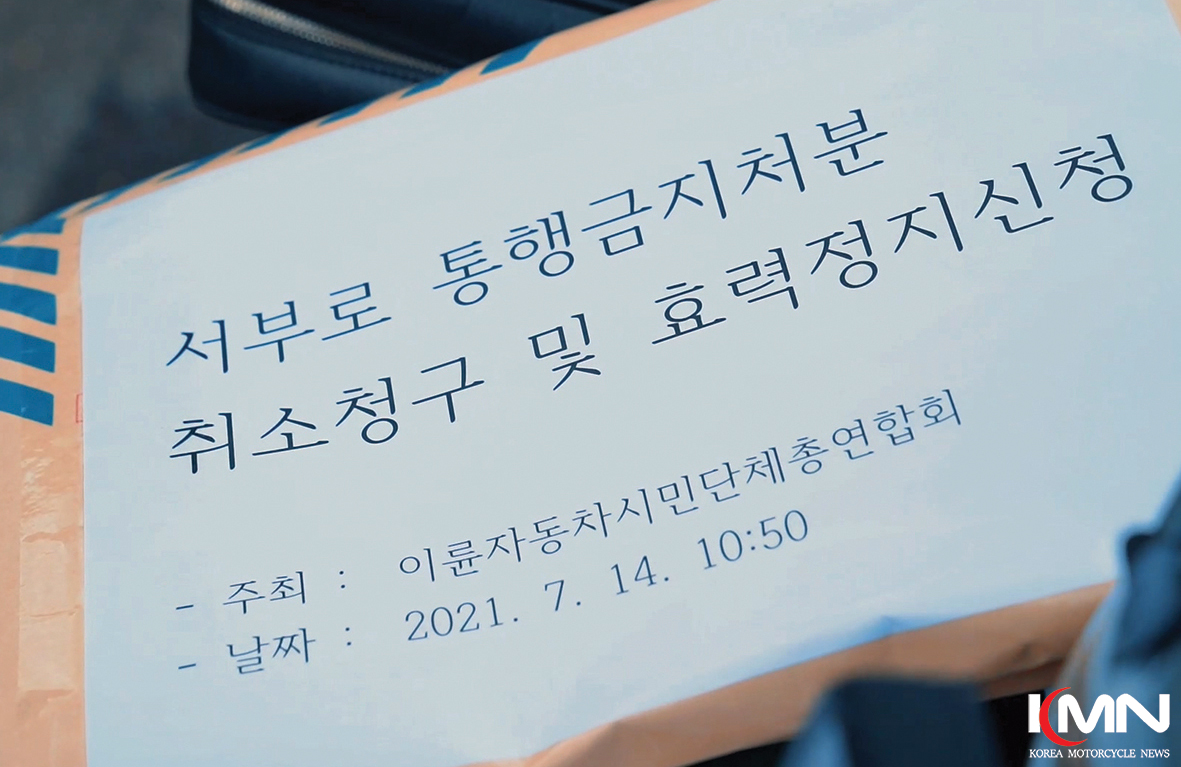 서부로 통행금지처분
취소청구 및 효력정지신청
- 주최 : 이륜자동차시민단체총연합회
- 날짜 : 2021. 7. 14. 10:50
KMN
KOREA MOTORCYCLE NEWS